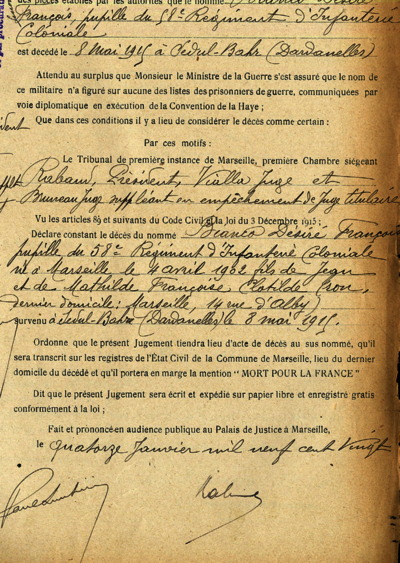 des pièces établies par les autorités que le nommé Bianco Désiré
François, pupille du 58e Régiment d'Infanterie
Coloniale
est décédé le 8 mai 1915 à Sedul-Bahr (Dardanelles)
Attendu au surplus que Monsieur le Ministre de la Guerre s'est assuré que le nom de
ce militaire n'a figuré sur aucune des listes des prisonniers de guerre, communiquées par
voie diplomatique en exécution de la Convention de la Haye ;
Que dans ces conditions il y a lieu de considérer le décès comme certain :
Par ces motifs :
Le Tribunal de première instance de Marseille, première Chambre siégeant
Rabaud, Président, Vialla Juge et
Bruneau Juge suppléant en empêchement de Juge titulaire
Vu les articles 89 et suivants du Code Civil et la loi du 3 Décembre 1915 ;
Déclare constant le décès du nommé Bianco Désiré François
pupille du 58e Régiment d'Infanterie Coloniale
né à Marseille, le 4 avril 1902 fils de Jean
et de Mathilde Françoise Clotilde Cron,
dernier domicile : Marseille, 14 rue d'Alby)
survenu à Sedul-Bahr (Dardanelles) le 8 mai 1915.
Ordonne que le présent Jugement tiendra lieu d'acte de décès au sus nommé, qu'il
sera transcrit sur les registres de l'État Civil de la Commune de Marseille, lieu du dernier
domicile du décédé et qu'il portera en marge la mention " MORT POUR LA FRANCE "
Dit que le présent Jugement sera écrit et expédié sur papier libre et enregistré gratis
conformément à la loi ;
Fait et prononcé en audience publique au Palais de Justice à Marseille,
le quatorze Janvier mil neuf cent vingt